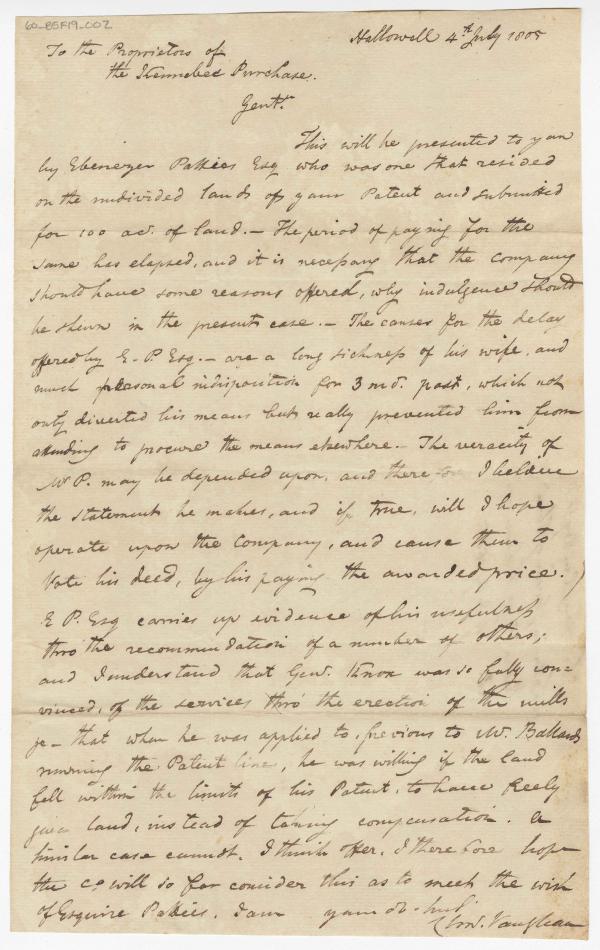 60_BSF19_002
Hallowell 4th July 1808
To the Proprietors of
the Kennebec Purchase.
Gentn
This will be presented to you
by Ebenezer Pattees Esq who was one that resided
on the undivided lands of your Patent and submitted
for 100 ac. of land. - The period of paying for the
same has elapsed, and it is necessary that the company
should have some reasons offered, why indulgence should
be shewn in the present case. - The causes for the delay
offered by E - P. Esq. - are a long sickness of his wife, and
much personal indisposition for 3 mo. past, which not
only diverted his means but really prevented him from
attending to procure the means elsewhere - The veracity of
Mr P. may be depended upon, and there I believe
the statement he makes, and if true, will I hope
operate upon the Company, and cause them to
Vote his deed, by his paying the awarded price.
E P. Esq carries up evidence of his usefulness
thro' the recommendation of a number of others;
and I understand that Genl. Knox was so fully con=
vinced, of the services thro' the erection of the mills
- that when he was applied to, previous to Mr. Ballards
running the Patent line, he was willing if the land
fell within the limits of his Patent, to have freely
given land, instead of taking compensation. a
similar case cannot, I think offer. I therefore hope
the Co. will so far consider this as to meet the wish
of Esquire Pattees. I am your ob. hul
Vaughan